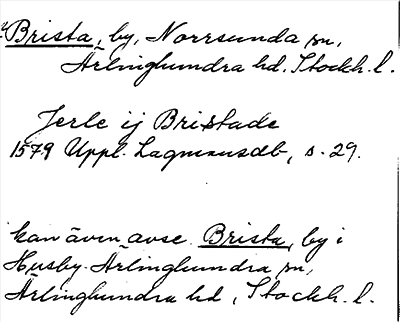 Brista, by, Norrsunda sn,
Ärlinghundra hd, Stockh. l.
Jerle ij Bristade
1579 Uppl. Lagmansdb, s. 29.
kan även avse Brista, by i
Husby-Ärlinghundra sn,
Ärlinghundra hd, Stockh. l.